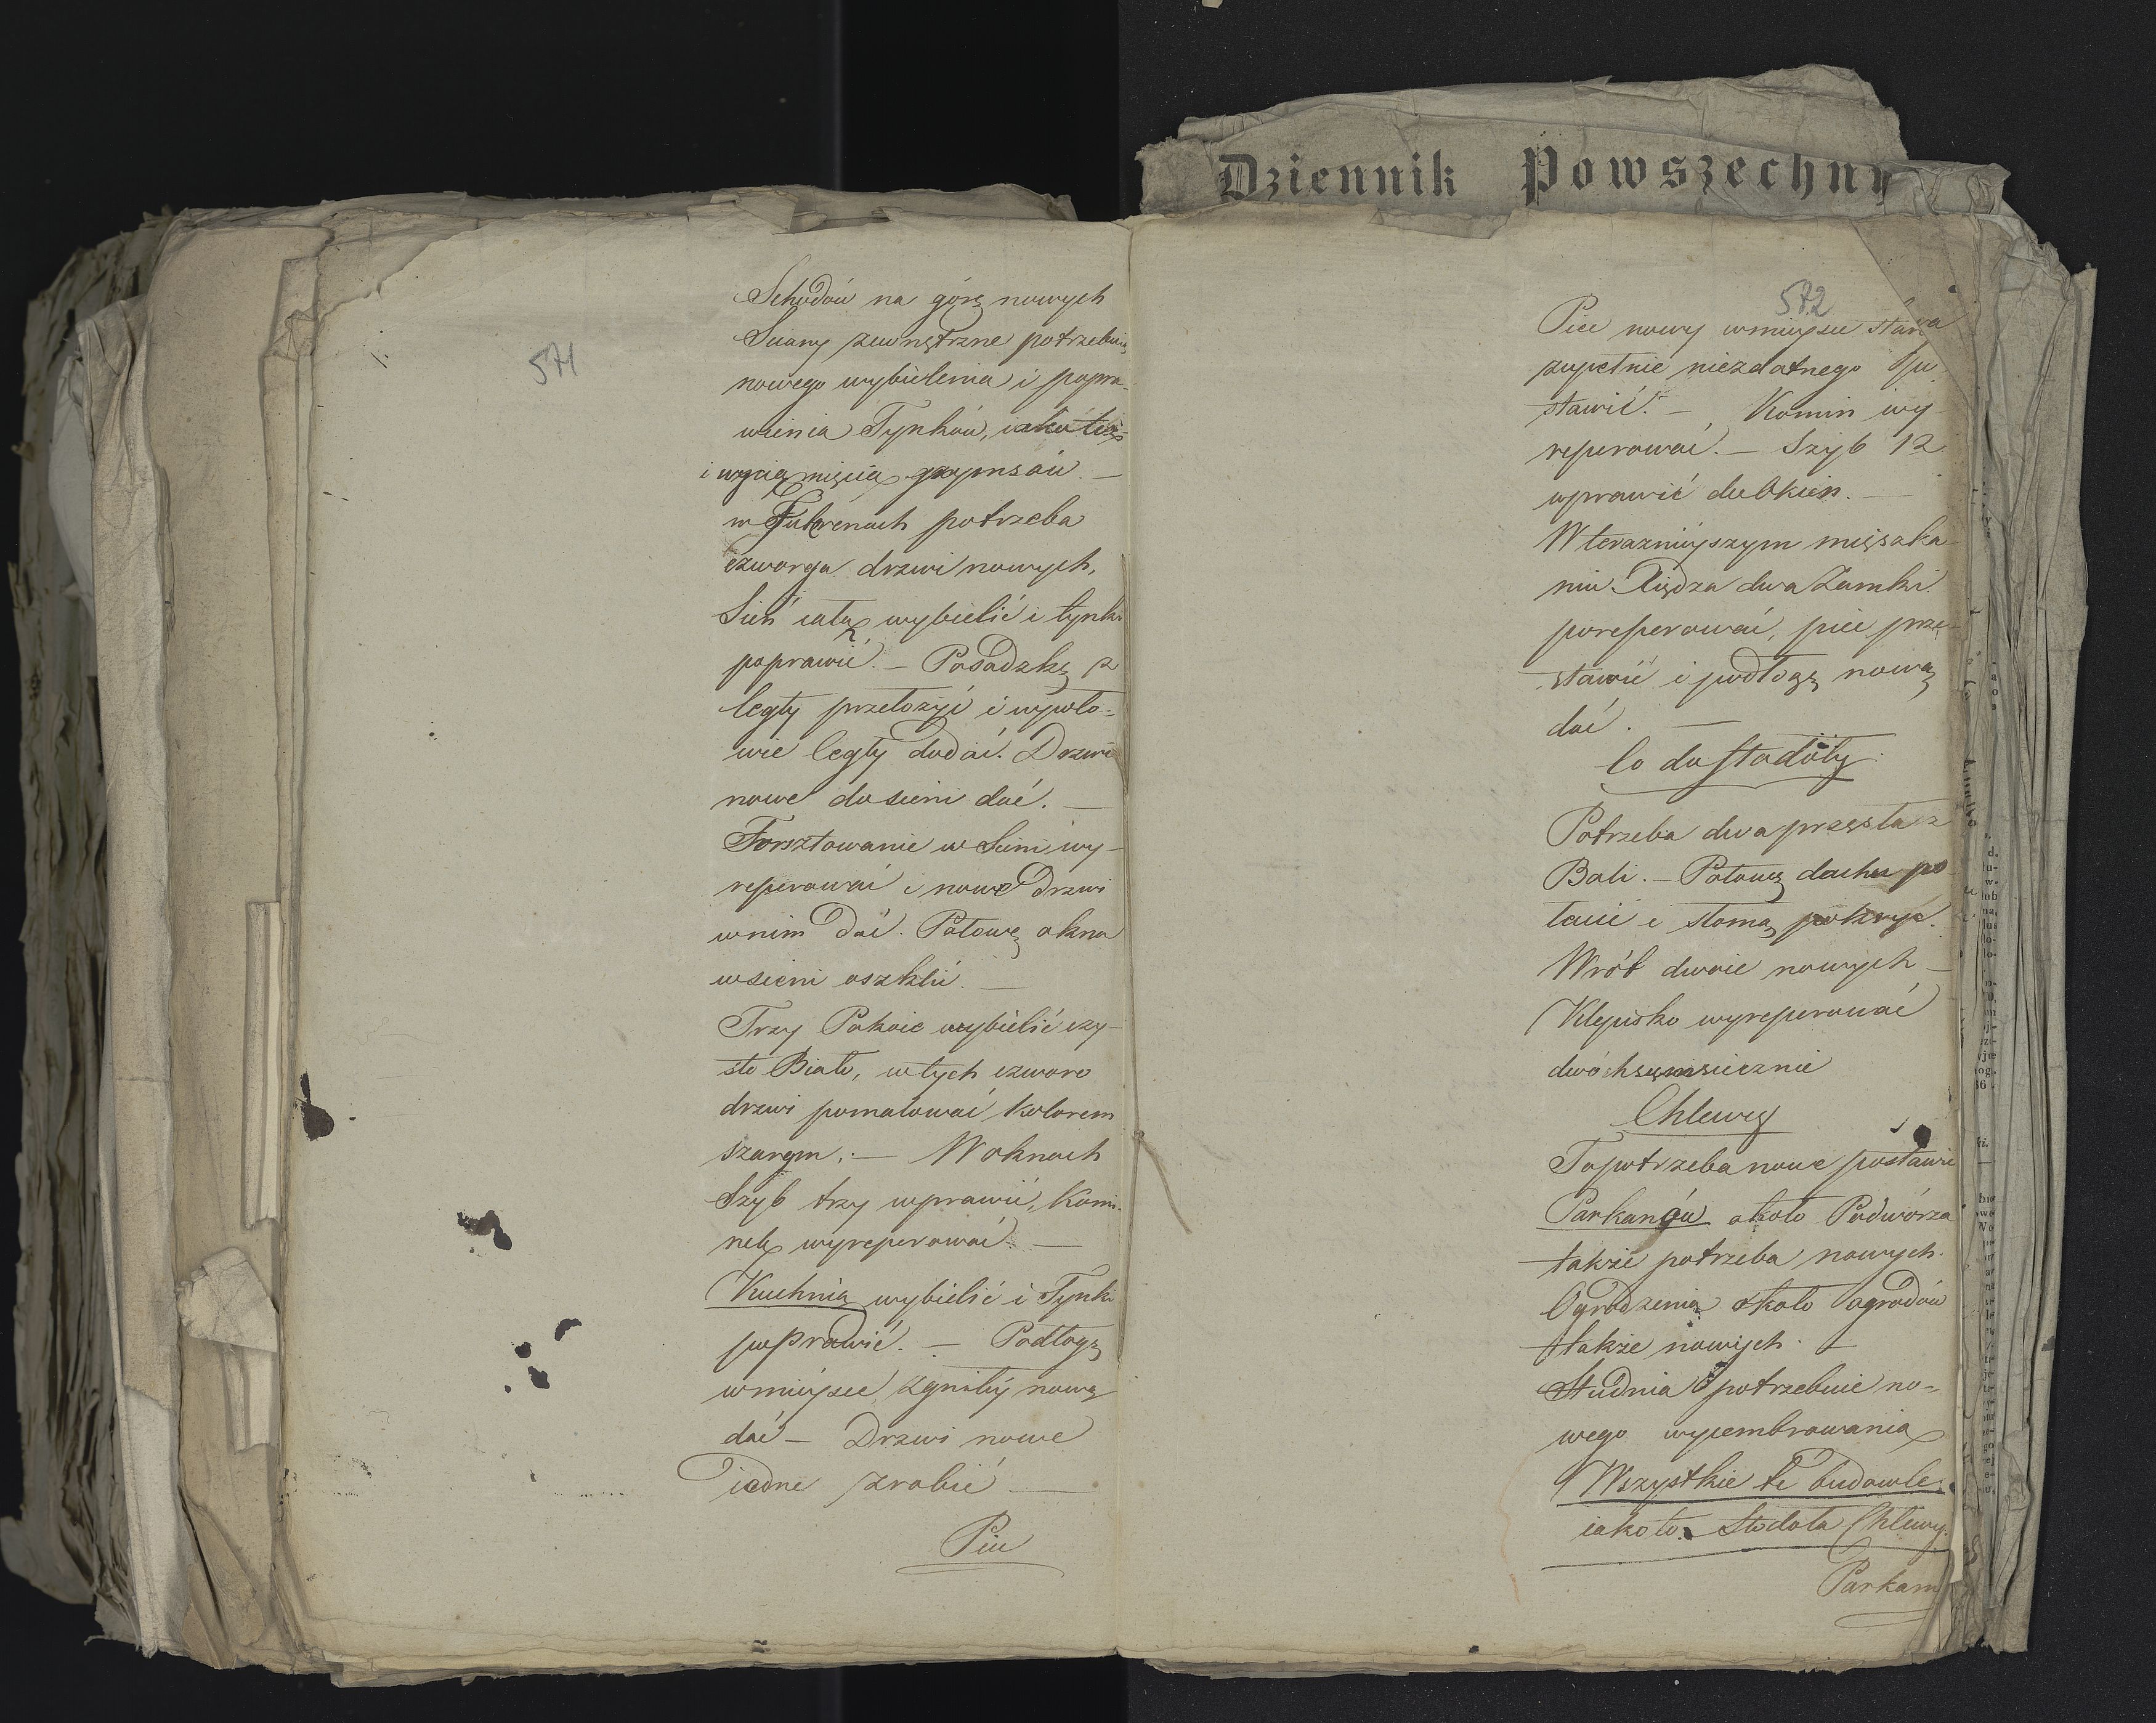 Dziennik Powszechny
571
Schodów na górę nowych
Sciany zewnętrzne potrzebuią
nowego wybielenia i popra-
wienia Tynków, iako też
i wyciągnięcia gzymsów. —
w Futrenach potrzeba
czworga drzwi nowych,
Sień całą wybielić i tynki
poprawić. — Posadzkę z
Cegły przełożyć i w poło-
wie Cegły dodać. Drzwi
nowe do sieni dać. —
Forsztowanie w Sieni wy-
reperować i nowe Drzwi
w nim Dać. Połowę okna
w sieni oszklić. —
Trzy Pokoie wybielić czy-
sto Biało, w tych czworo
drzwi pomalować kolorem
szarym. — W oknach
Szyb trzy wprawić, Komi-
nek wyreperować. —
Kuchnia wybielić i Tynki
poprawić. — Podłogę
w mieysce zgniłéy nową
dać — Drzwi nowe
iedne zrobić —
Piec
572
Piec nowy w mieysce starego
zupełnie niezdatnego
stawić. — Komin wy
reperować. — Szyb 12
wprawić do Okien. —
W teraznieyszym mieszka-
niu Xiędza dwa Zamki
poreperować, piec prze-
stawić i podłogę nową
dać. —
Co do Stodoły
Potrzeba dwa przęsła z
Bali. — Połowę dachu po
łacić i słomą pokryć.
Wrót dwoie nowych —
Klepisko wyreperować
dwóch
Chlewy
To potrzeba nowe postawić
Parkanów około Podwórza
także potrzeba nowych.
Ogrodzenia około ogrodów
także nowych. —
Studnia potrzebuie no-
wego wycembrowania
Wszystkie te budowle
iako to. Stodoła Chlewy
Parkany